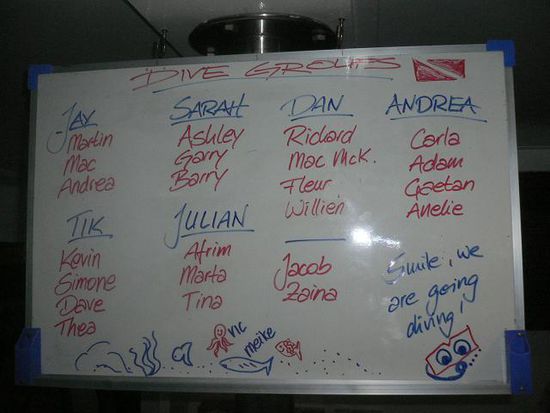 DIVE GROUPS
JAY
Martin
Mac
Andrea
SARAH
Ashley
Garry
Barry
DAN
Richard
Mac McK.
Fleur
Willien
ANDREA
Carla
Adam
Gaetan
Anelie
TIK
Kevin
Simone
Dave
Thea
JULIAN
Afrim
Marta
Tina
Jacob
Zaina
Smile, we
are going
diving!
vic
meike